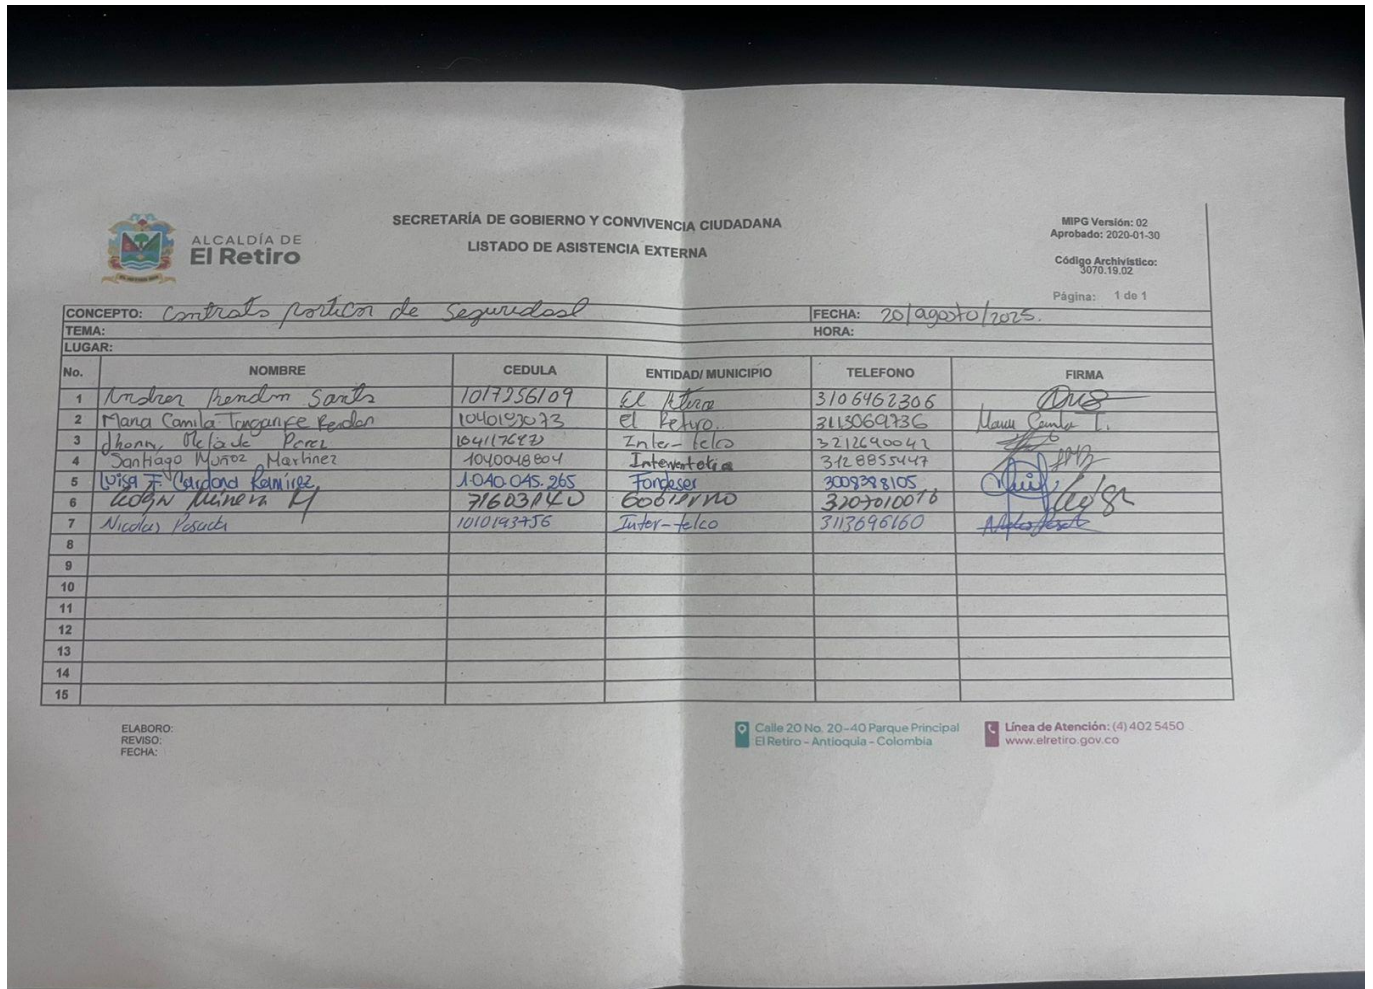 SECRETARÍA DE GOBIERNO Y CONVIVENCIA CIUDADANA
LISTADO DE ASISTENCIA EXTERNA
ALCALDÍA DE
El Retiro
MIPG Versión: 02
Aprobado: 2020-01-30
Código Archivístico:
3070.19.02
Página: 1 de 1
CONCEPTO: Contrato de Seguridad FECHA: 20/agosto/2025.
TEMA: HORA:
LUGAR:
No. NOMBRE CEDULA ENTIDAD/ MUNICIPIO TELEFONO FIRMA
1 Andres Rendon 1017256109 El Retiro 3106962306
2 Maria Camila Rendon 1040193073 El Retiro. 3113069736 Maria Camila T.
3 Jhonny Perez Inter-telco 3212690042
4 Santiago Muñoz Martinez 1040048804 Interventoria 3128855447
5 Luisa F. Cardona Ramirez 1.040.045.265 Fondeser 3008388105
6 Gobierno
7 Nicolas Posada 1010193756 Inter-telco 3113696160
8
9
10
11
12
13
14
15
ELABORO:
REVISO:
FECHA:
Calle 20 No. 20-40 Parque Principal
El Retiro - Antioquia - Colombia
Línea de Atención: (4) 402 5450
www.elretiro.gov.co